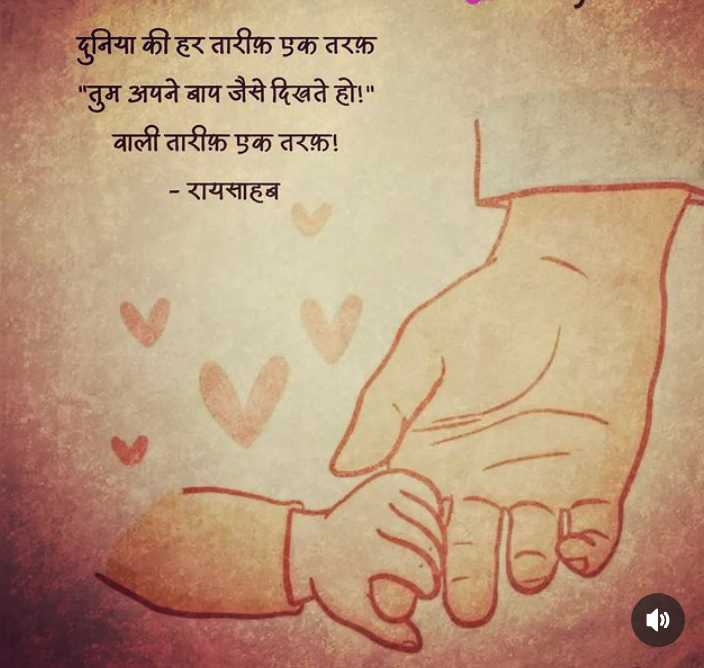 दुनिया की हर तारीफ़ एक तरफ़
"तुम अपने बाप जैसे दिखते हो!"
वाली तारीफ़ एक तरफ़!
- रायसाहब